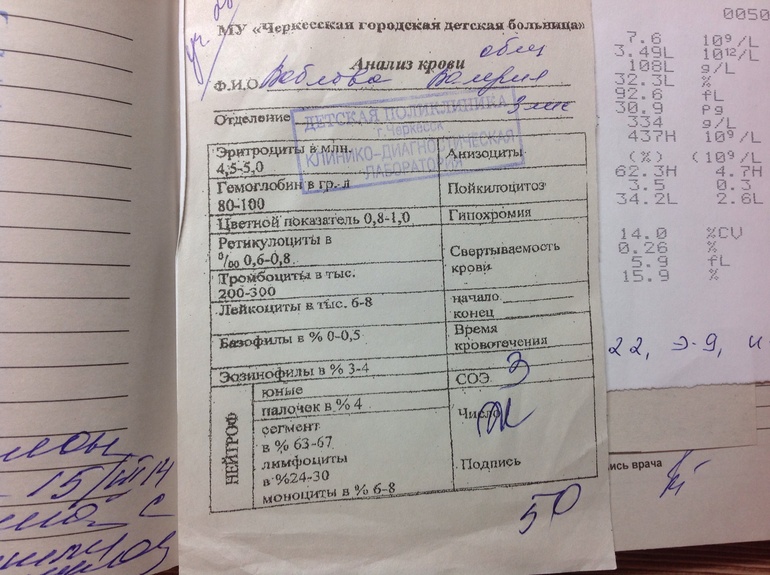 МУ «Черкесская городская детская больница»
Анализ крови общ
Ф.И.О. Валерия
Отделение 3 мес
ДЕТСКАЯ ПОЛИКЛИНИКА
г. Черкесск
КЛИНИКО-ДИАГНОСТИЧЕСКАЯ
ЛАБОРАТОРИЯ
Эритроциты в млн.
4,5-5,0
Анизоциты
Гемоглобин в гр.-л
80-100
Пойкилоцитоз
Цветной показатель 0,8-1,0
Гипохромия
Ретикулоциты в
‰ 0,6-0,8
Свертываемость
крови
Тромбоциты в тыс.
200-300
Лейкоциты в тыс. 6-8
начало
конец
Базофилы в % 0-0,5
Время
кровотечения
Эозинофилы в % 3-4
СОЭ 3
НЕЙТРОФ
юные
палочек в % 4
Число
сегмент
в % 63-67
лимфоциты
в %24-30
Подпись
моноциты в % 6-8
50
0050
7.6 10^9/L
3.49L 10^12/L
108L g/L
32.3L %
92.6 fL
30.9 Pg
334 g/L
437H 10^9/L
(%) (10^9/L
62.3H 4.7H
3.5 0.3
34.2L 2.6L
14.0 %CV
0.26 %
5.9 fL
15.9 %
22, э-9, и
ись врача
15/III 14